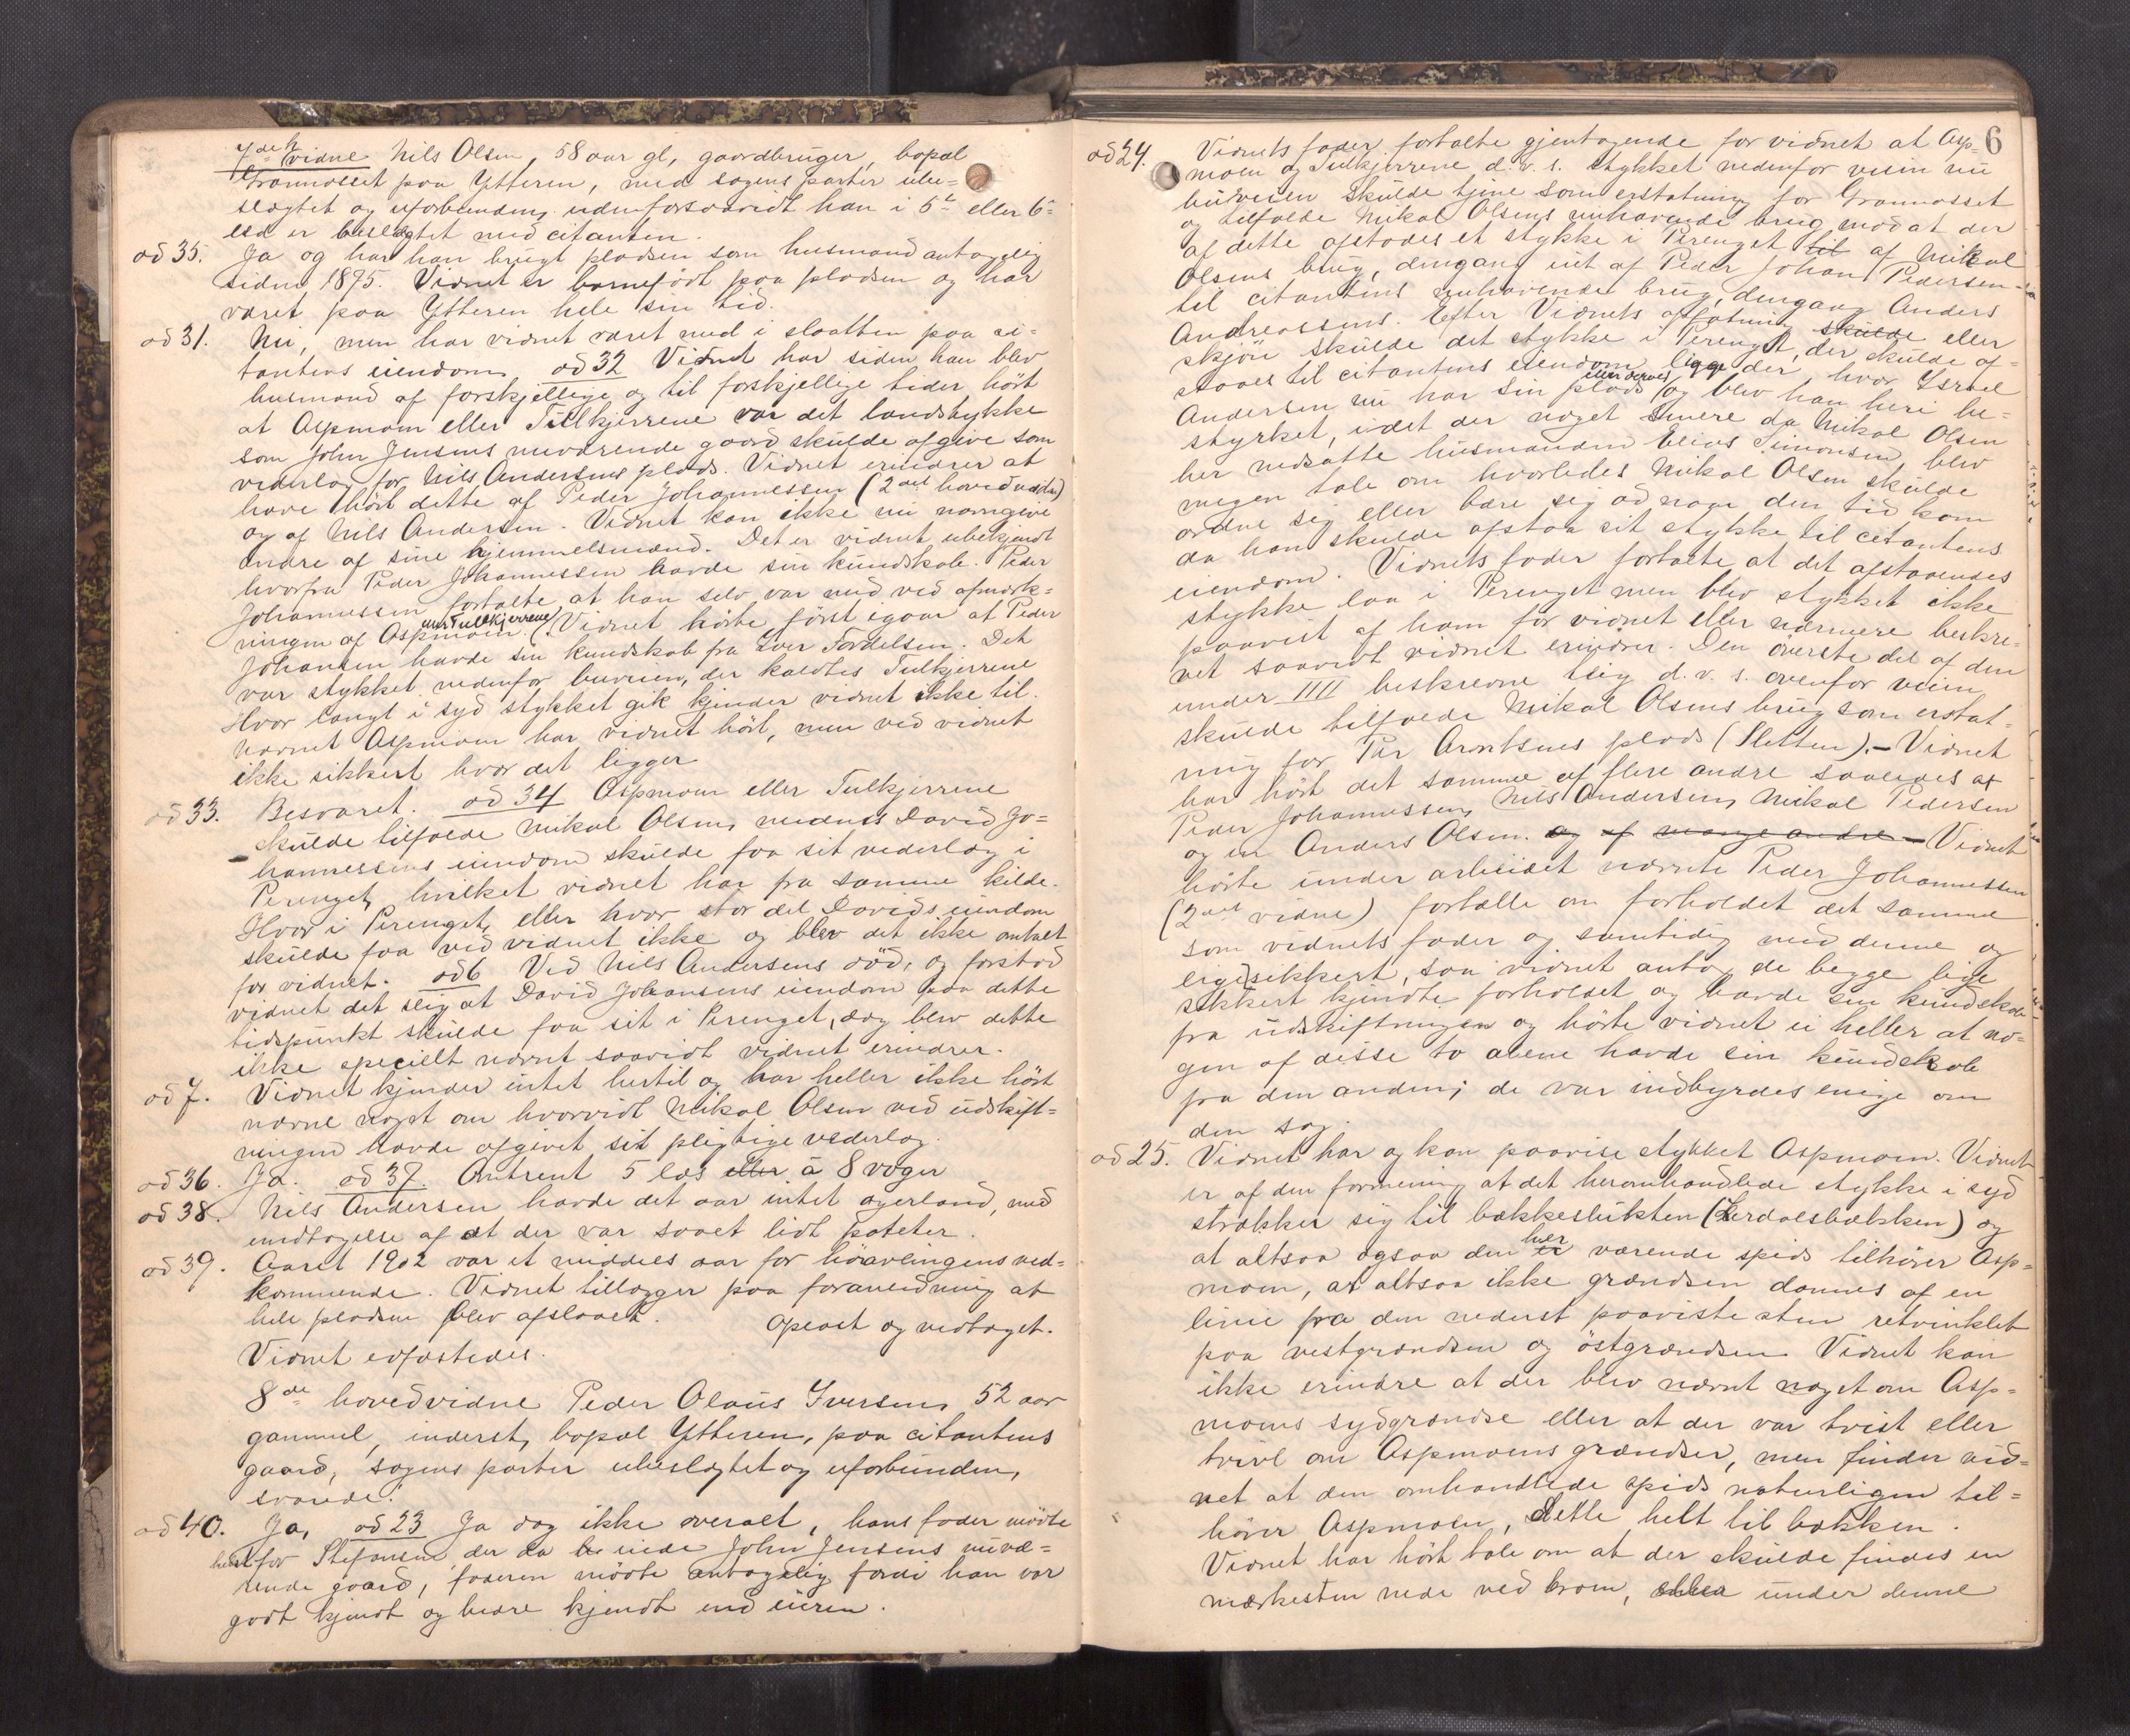 7de h vidne Nils Olsen, 58 aar gl, gaardbruger, bopæl
Grannæsset paa Ytteren, med sagens parter ube=
slægtet og uforbunden, undenforsaavidt han i 5te eller 6te
led er beslægtet med citanten.
ad 35. Ja og har han brugt pladsen som husmand antagelig
siden 1875. Vidnet er barnefödt paa pladsen og har
været paa Ytteren hele sin tid.
ad 31. Nei, men har vidnet været med i slaatten paa ci=
tantens eiendom. ad 32 Vidnet har siden han blev
husmand af forskjellige og til forskjellige tider hört
at Aspmoen eller Tulkjerrene var det landstykke
som John Jensens nuværende gaard skulde afgive som
vederlag for Nils Andersens plads. Vidnet erindrer at
have hört dette af Peder Johannessen (2det hovedvidne)
og af Nils Andersen. Vidnet kan ikke nu navngive
andre af sine hjemmelsmænd. Det er vidnet ubekjendt
hvorfra Peder Johannessen havde sin kundskab. Peder
Johannessen fortalte at han selv var med ved afmærk=
ningen af Aspmoen (Tulkjerrene). Vidnet hörte först igaar at Peder
Johansen havde sin kundskab fra Iver Tordelsen. Det
var stykket nedenfor buveien, der kaldtes Tulkjerrene
Hvor langt i syd stykket gik kjender vidnet ikke til.
Navnet Aspmoen har vidnet hört, men ved vidnet
ikke sikkert hvor det ligger
ad 33. Besvaret. ad 34 Aspmoen eller Tulkjerrene
skulde tilfalde Mikal Olsen, medens David Jo=
hannessens eiendom skulde faa sit vederlag i
Perenget, hvilket vidnet har fra samme kilde.
Hvor i Perenget, eller hvor stor del Davids eiendom
skulde faa ved vidnet ikke og blev det ikke omtalt
for vidnet. ad 6 Ved Nils Andersens död, og forstod
vidnet det slig at David Johansens eiendom paa dette
tidspunkt skulde faa sit i Perenget, dog blev dette
ikke specielt nævnt saavidt vidnet erindrer.
ad 7. Vidnet kjender intet hertil og har heller ikke hört
nævne noget om hvorvidt Mikal Olsen ved udskift=
ningen havde afgivet sit pligtige vederlag.
ad 36. Ja. ad 37. Omtrent 5 læs eller à 8 voger
ad 38. Nils Andersen havde det aar intet agerland, med
undtagelse af at der var saaet lidt poteter.
ad 39. Aaret 1902 var et middels aar for höavlingens ved=
kommende. Vidnet tillægger paa foranledning at
hele pladsen blev afslaaet. Oplæst og vedtaget.
Vidnet edfæstedes.
8de hovedvidne Peder Olaus Iversen, 52 aar
gammel, inderst, bopæl Ytteren, paa citantens
gaard, sagens parter ubeslægtet og uforbunden,
svarede:
ad 40. Ja, ad 23 Ja dog ikke overalt, hans fader mödte
her for Stefansen der da eiede John Jensens nuvæ=
rende gaard, faderen mödte antagelig fordi han var
godt kjendt og bedre kjendt end eieren.
6
ad 24. Vidnets fader fortalte gjentagende for vidnet at Asp=
moen og Tulkjerrene d. v. s. stykket nedenfor veien nu
buveien skulde tjene som erstatning for Grannæsset
og tilfalde Mikal Olsens nuhavende brug mod at der
af dette afstodes et stykke i Perenget til af Mikal
Olsens brug, dengang eiet af Peder Johan Pedersen
til citantens nuhavende brug, dengang Anders
Andreassens. Efter Vidnets opfatning skulde eller
skjön skulde det stykke i Perenget, der skulde af=
staaes til citantens eiendom ligge der, hvor Israel
Andersen nu har sin plads og blev han heri be=
styrket, idet der noget senere da Mikal Olsen
her nedsatte husmanden Elias Simonsen, blev
megen tale om hvorledes Mikal Olsen skulde
ordne sig eller bære sig ad naar den tid kom
da han skulde afstaa sit stykke til citantens
eiendom. Vidnets fader fortalte at det afstaaendes
stykke laa i Perenget men blev stykket ikke
paavist af ham for vidnet eller nærmere beskre=
vet saavidt vidnet erindrer. Den överste del af den
under IIII beskrevne teig d. v. s. ovenfor veien
skulde tilfalde Mikal Olsens brug som erstat=
ning for Per Arntsens plads (Sletten). – Vidnet
har hört det samme af flere andre saaledes af
Peder Johannessen, Nils Andersen, Mikal Pedersen
og en Anders Olsen. og af mange andre – Vidnet
hörte under arbeidet nævnte Peder Johannessen
(2det vidne) fortælle om forholdet det samme
som vidnets fader og samtidig med denne og
ligesikkert, saa vidnet antog de begge lige
sikkert kjendte forholdet og havde sin kundskab
fra udskiftningen og hörte vidnet ei heller at no=
gen af disse to alene havde sin kundskab
fra den anden; de var indbyrdes enige om
den sag.
ad 25. Vidnet har og kan paavise stykket Aspmoen. Vidnet
er af den formening at det heromhandlede stykke i syd
strækker sig til bækkeslukten (Lerdalsbækken) og
at altsaa ogsaa den her er værende spids tilhörer Asp=
moen, at altsaa ikke grændsen dannes af en
linie fra den nederst paaviste sten retvinklet
paa vestgrændsen og östgrændsen. Vidnet kan
ikke erindre at der blev nævnt noget om Asp=
moens sydgrændse eller at der var tvist eller
tvivl om Aspmoens grændser, men finder vid=
net at den omhandlede spids naturligen til=
hörer Aspmoen, dette helt til bækken.
Vidnet har hört tale om at der skulde findes en
mærkesten nede ved broen, under denne